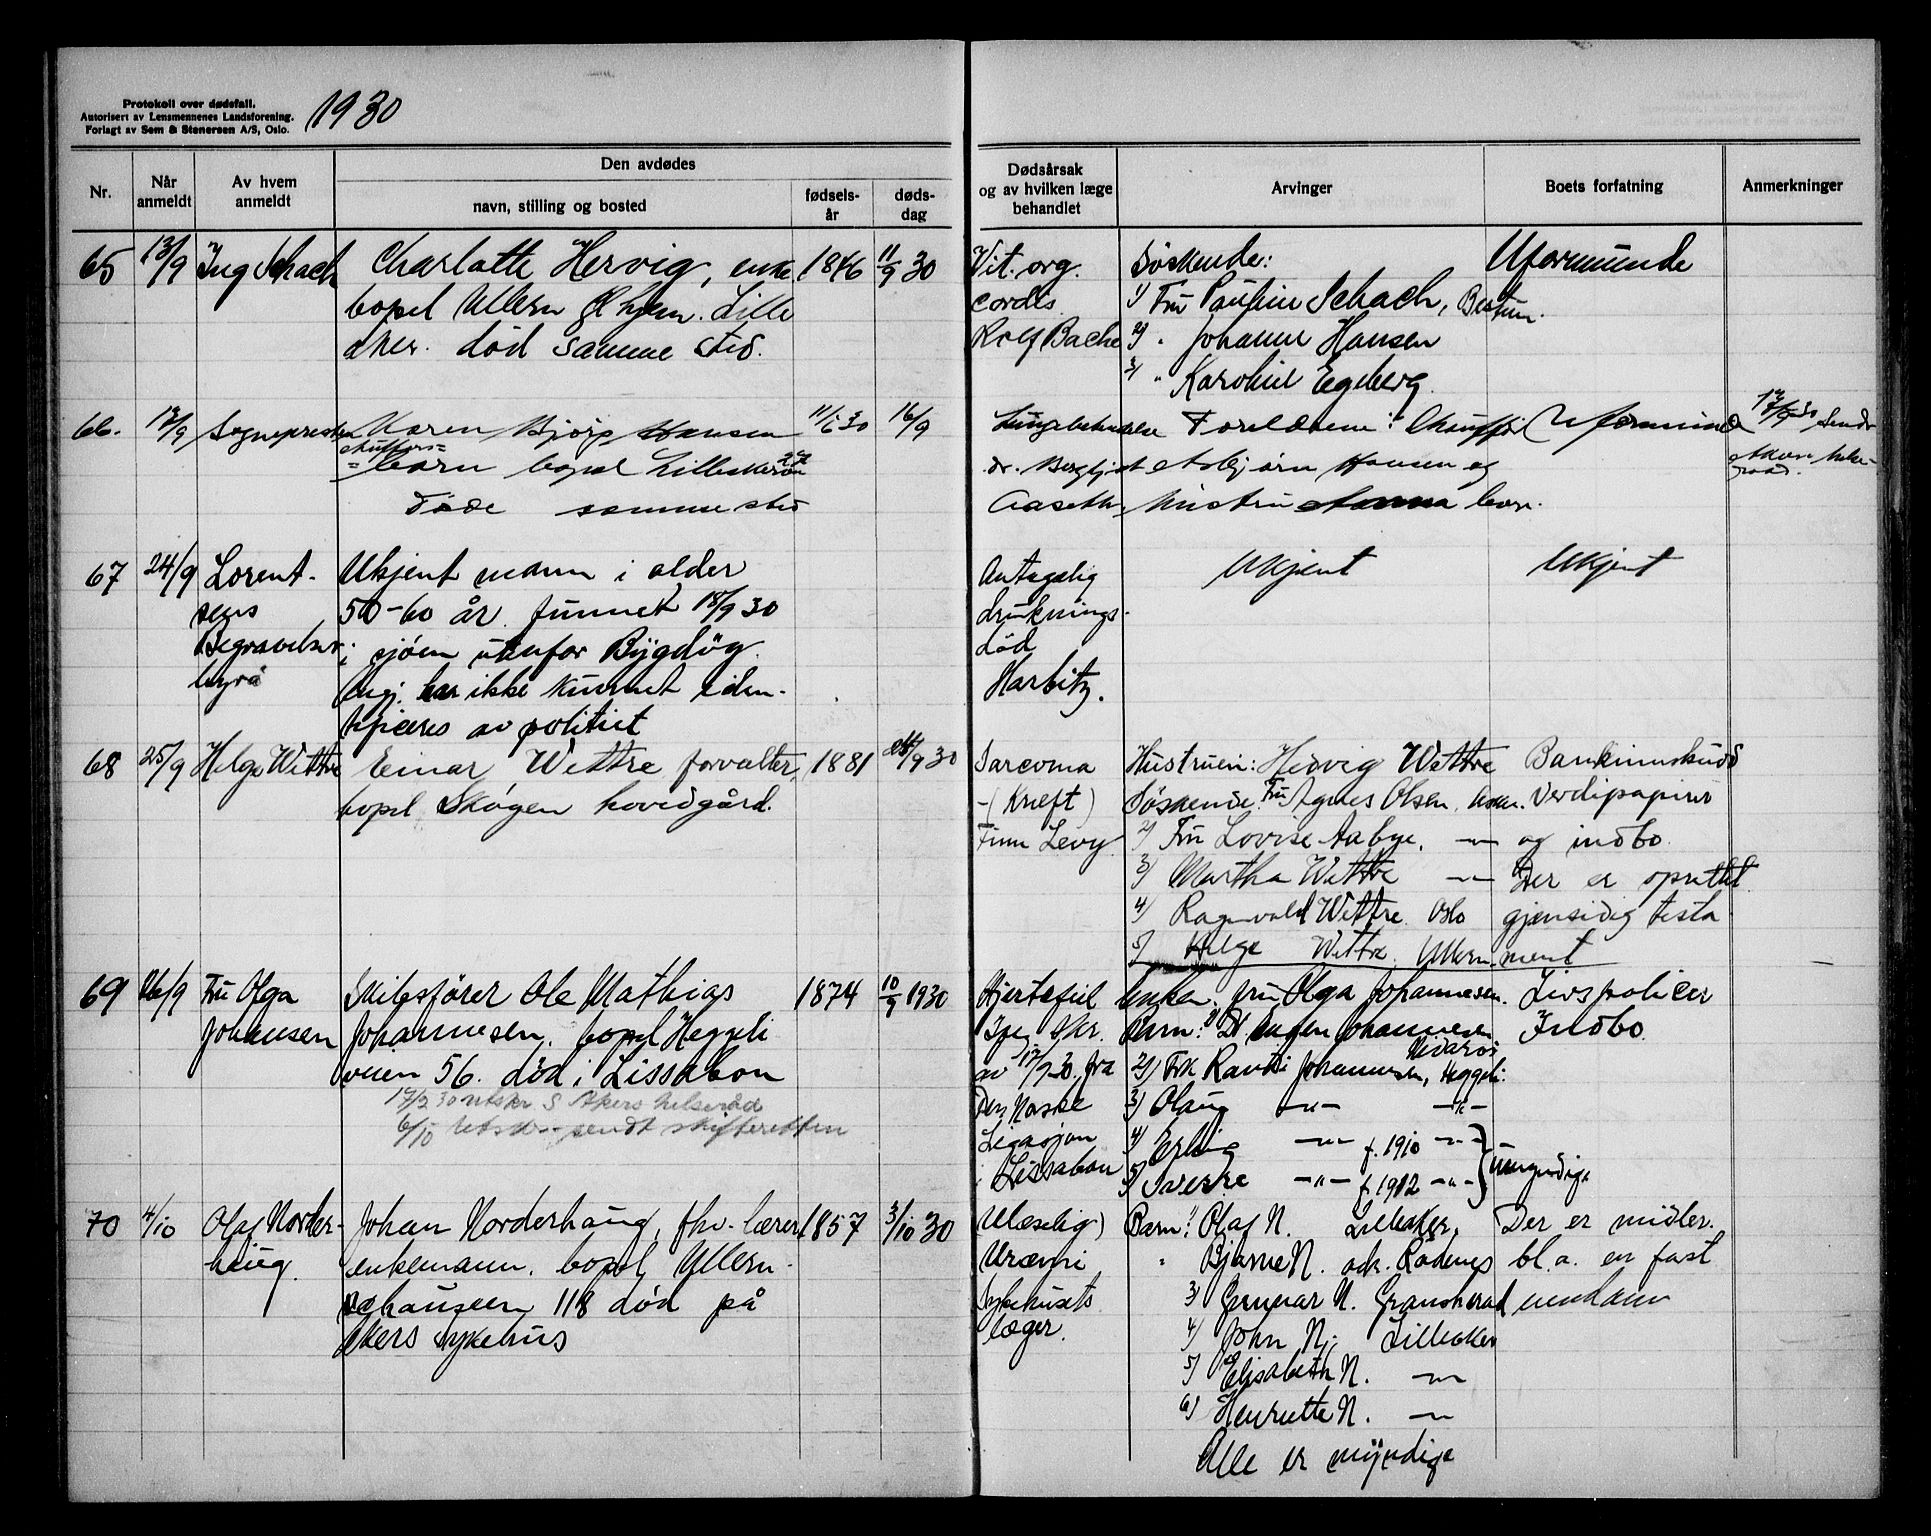 Protokoll over dødsfall.
Autorisert av Lensmennenes Landsforening.
Forlagt av Sem & Stenersen A/S, Oslo.
1930
Nr.
Når anmeldt
Av hvem anmeldt
Den avdødes
navn, stilling og bosted
fødsels-år
døds-dag
Dødsårsak og av hvilken læge behandlet
Arvinger
Boets forfatning
Anmerkninger
65 13/9 Ing Schach Charlotte Hervig, enke 1846 11/9 30
bopel Ullern Gl hjem. Lille
aker. død samme sted.
Vit. org.
cordis
Rolf Bache
Söskende:
1) Fru Pauline Schach, Bestum.
2) " Johanne Hansen
3) " Karoline Egeberg
Uformuende
66. 17/9 Sognepresten Karen Bjørg Hansen 11/6 30 16/9
chufførs=
=barn bopel Lilleakervn 27
Døde samme sted
dr. Bergljot
Aaseth
Foreldrene: Chauffør
Asbjørn Hansen og
hustru
17/9 30 Sendt
Aker helse-
raad.
67 24/9 Lorent-
sens
Begravelses
byrå
Ukjent mann i alder
50-60 år. funnet 18/9 30
i sjøen utenfor Bygdöy.
Angj. har ikke kunnet iden-
tifiseres av politiet
Antagelig
druknings-
død
Harbitz.
Ukjent
Ukjent
68 25/9 Helge Wettre Einar Wettre forvalter, 1881 /9 30
bopel Skøyen hovedgård.
Sarcoma
-(Kreft)
Finn Levy
Hustruen: Hedvig Wettre
Söskende. Fru Agnes Olsen, Asker.
2) Fru Lovise Aabye. -"-
3) Martha Wettre -"-
4) Ragnvald Wettre. Oslo
5) Helge Wettre. Ullern.
Bankinnskudd
Verdipapirer
og indbo.
Der er oprettet
gjensidig testa
ment
69 26/9 Fru Olga
Johansen
Skibsfører Ole Mathias 1874 10/9 1930
Johannesen, bopel Heggeli
veien 56. død i Lissabon
17/9 30 utskr S Akers helseråd
6/10 utskr. sendt skifteretten
Hjertefeil
av 12/9 30. fra
Den Norske
Legasjon
i Lissabon
Enken. fru Olga Johannesen.
Barn: 1) Johannesen
2) Frk Randi Johannesen, Heggeli.
3) Olaug -"- -"-
4) Erling -"- f. 1910 -"-
5) Sverre -"- f. 1912 -"-
} umyndige
Livspolicer
Indbo
70 4/10 Olaf Norder-
haug.
Johan Norderhaug, fhv. lærer 1857 3/10 30
enkemann, bopel Ullern-
chauseen 118 død på
Akers sykehus
(Ulæselig)
Uræmi
Sykehusets
læger.
Barn: Olaf N. Lilleaker.
" Bjarne N. adr. Rödenes
3) Gunnar N. Gransherad
4) John N. Lilleaker
5) Elisabeth N. -"-
6) Henriette N. -"-
Alle er myndige
Der er midler.
bl.a. en fast
eiendom